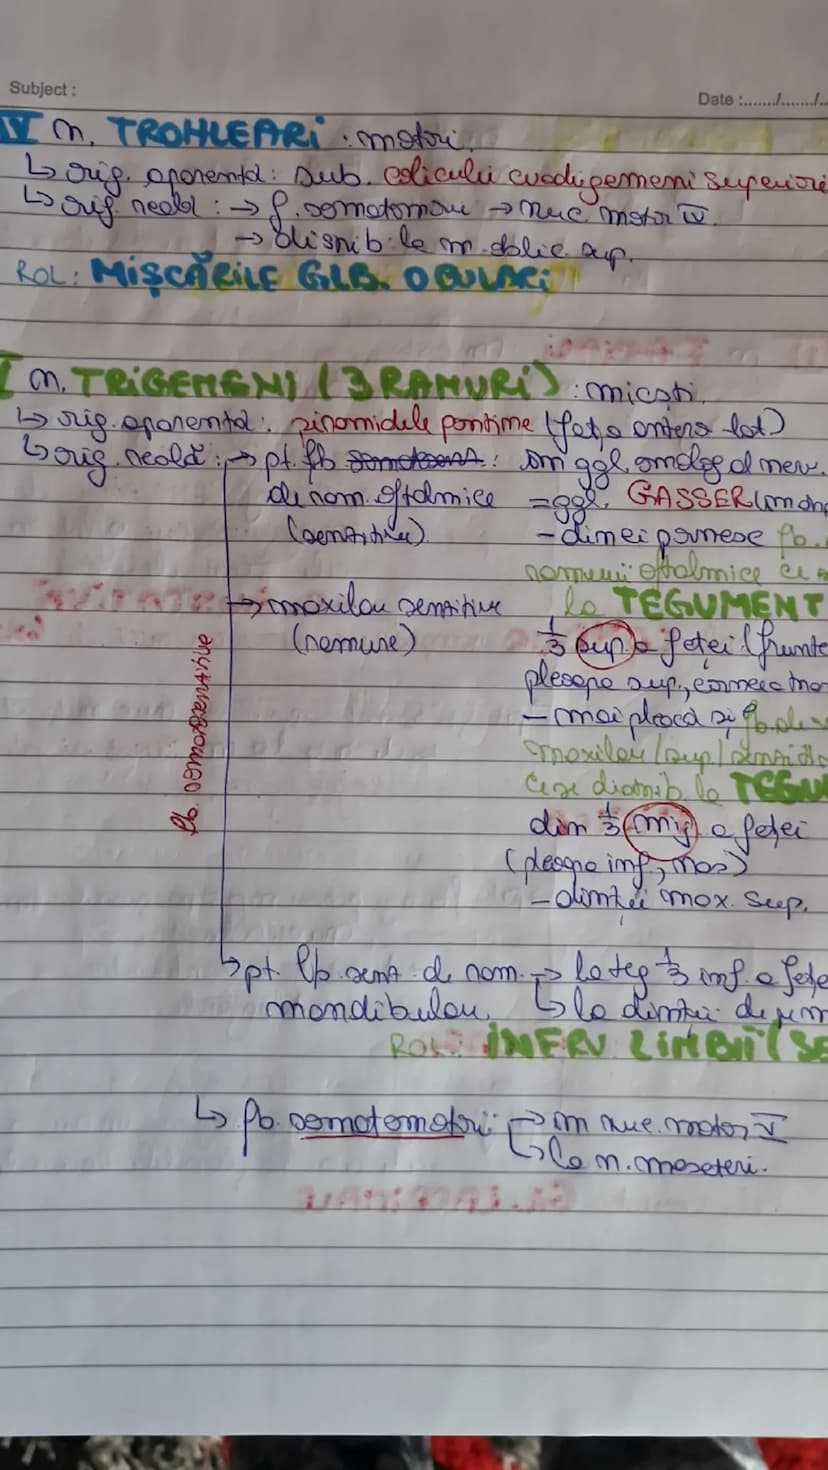 Subject :
Date :......./......./..
IV n. TROHLEARI : motori
↳ orig. aparentă: sub. coliculii cvadrigemeni superiori
↳ orig. reală : → f. somatomotor → nuc. motor IV
→ distrib. la m. oblic sup.
ROL: MIȘCĂRILE GLB. OCULARI
n. TRIGEMENI (3 RAMURI) : micști
↳ orig. aparentă: piramidele pontine (fața antero lat)
↳ orig. reală : → pt. fb : în ggl. omolog al nerv.
din ram. oftalmice = ggl. GASSER
(senzitive) - din ei pornesc fb.
ramurii oftalmice ce
→ maxilar senzitive la TEGUMENT
(ramure) 1/3 sup a feței (frunte
pleoapa sup, cornee
fb. somatosenzitive
- mai pleacă și fb. de
maxilar (sup)
ce se distrib la TEGU
din 1/3 mij a feței
(pleoapa inf, nas)
- dinții max. sup.
↳ pt. fb. senz. d. ram. → la teg 1/3 inf. a fețe
mandibular ↳ la dinții de pe
ROL: INERV LIMBII (SE
↳ fb. somatomotorii: → în nuc. motor V
↳ la m. maseteri.